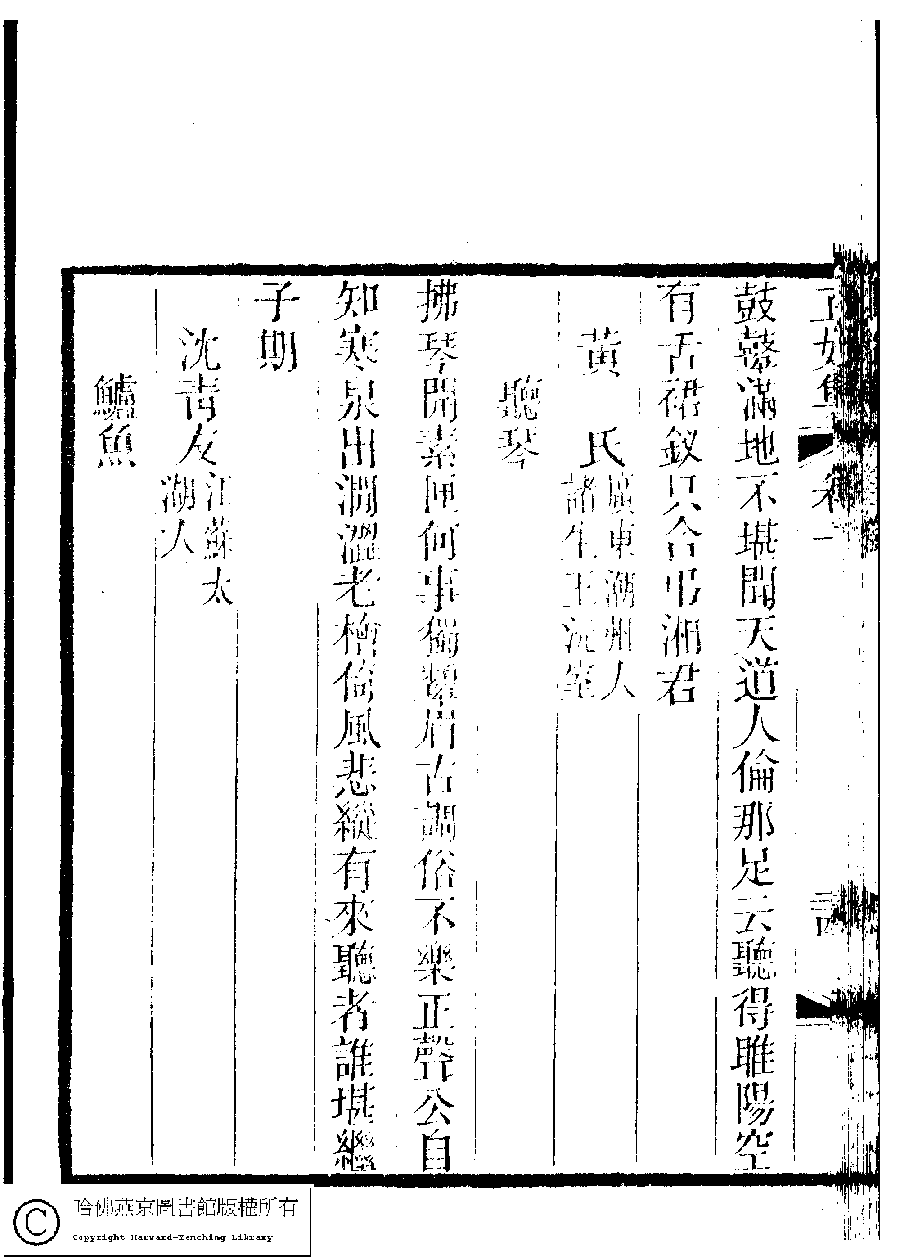 正始集 卷一
鼓鼙滿地不堪聞天道人倫那足云聽得睢陽空
有舌裙釵只合弔湘君
黃 氏
廣東潮州人
諸生王沅室
聽琴
拂琴開素匣何事獨顰眉古調俗不樂正聲公自
知寒泉出澗澀老檜倚風悲縱有來聽者誰堪繼
子期
沈靑友
江蘇太
湖人
鱸魚
哈佛燕京圖書館版權所有
Copyright Harvard-Yenching Library